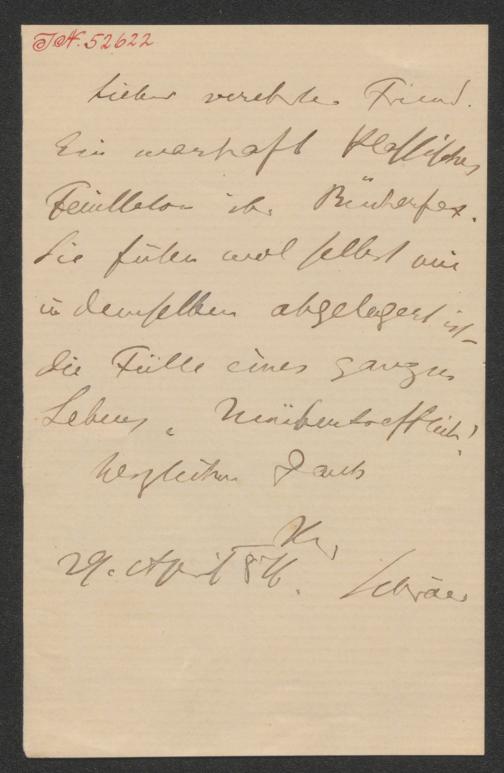 J.N. 52622
Lieber verehrter Freund.
Ein warhaft klassisches
Feuilleton ihr Bücherfex.
Sie fülen wol selbst wie
in demselben abgelagert ist
die Fülle eines ganzen
Lebens. Unübertrefflich!
Herzlichen Dank
Ihr
29. April 86. Schröer